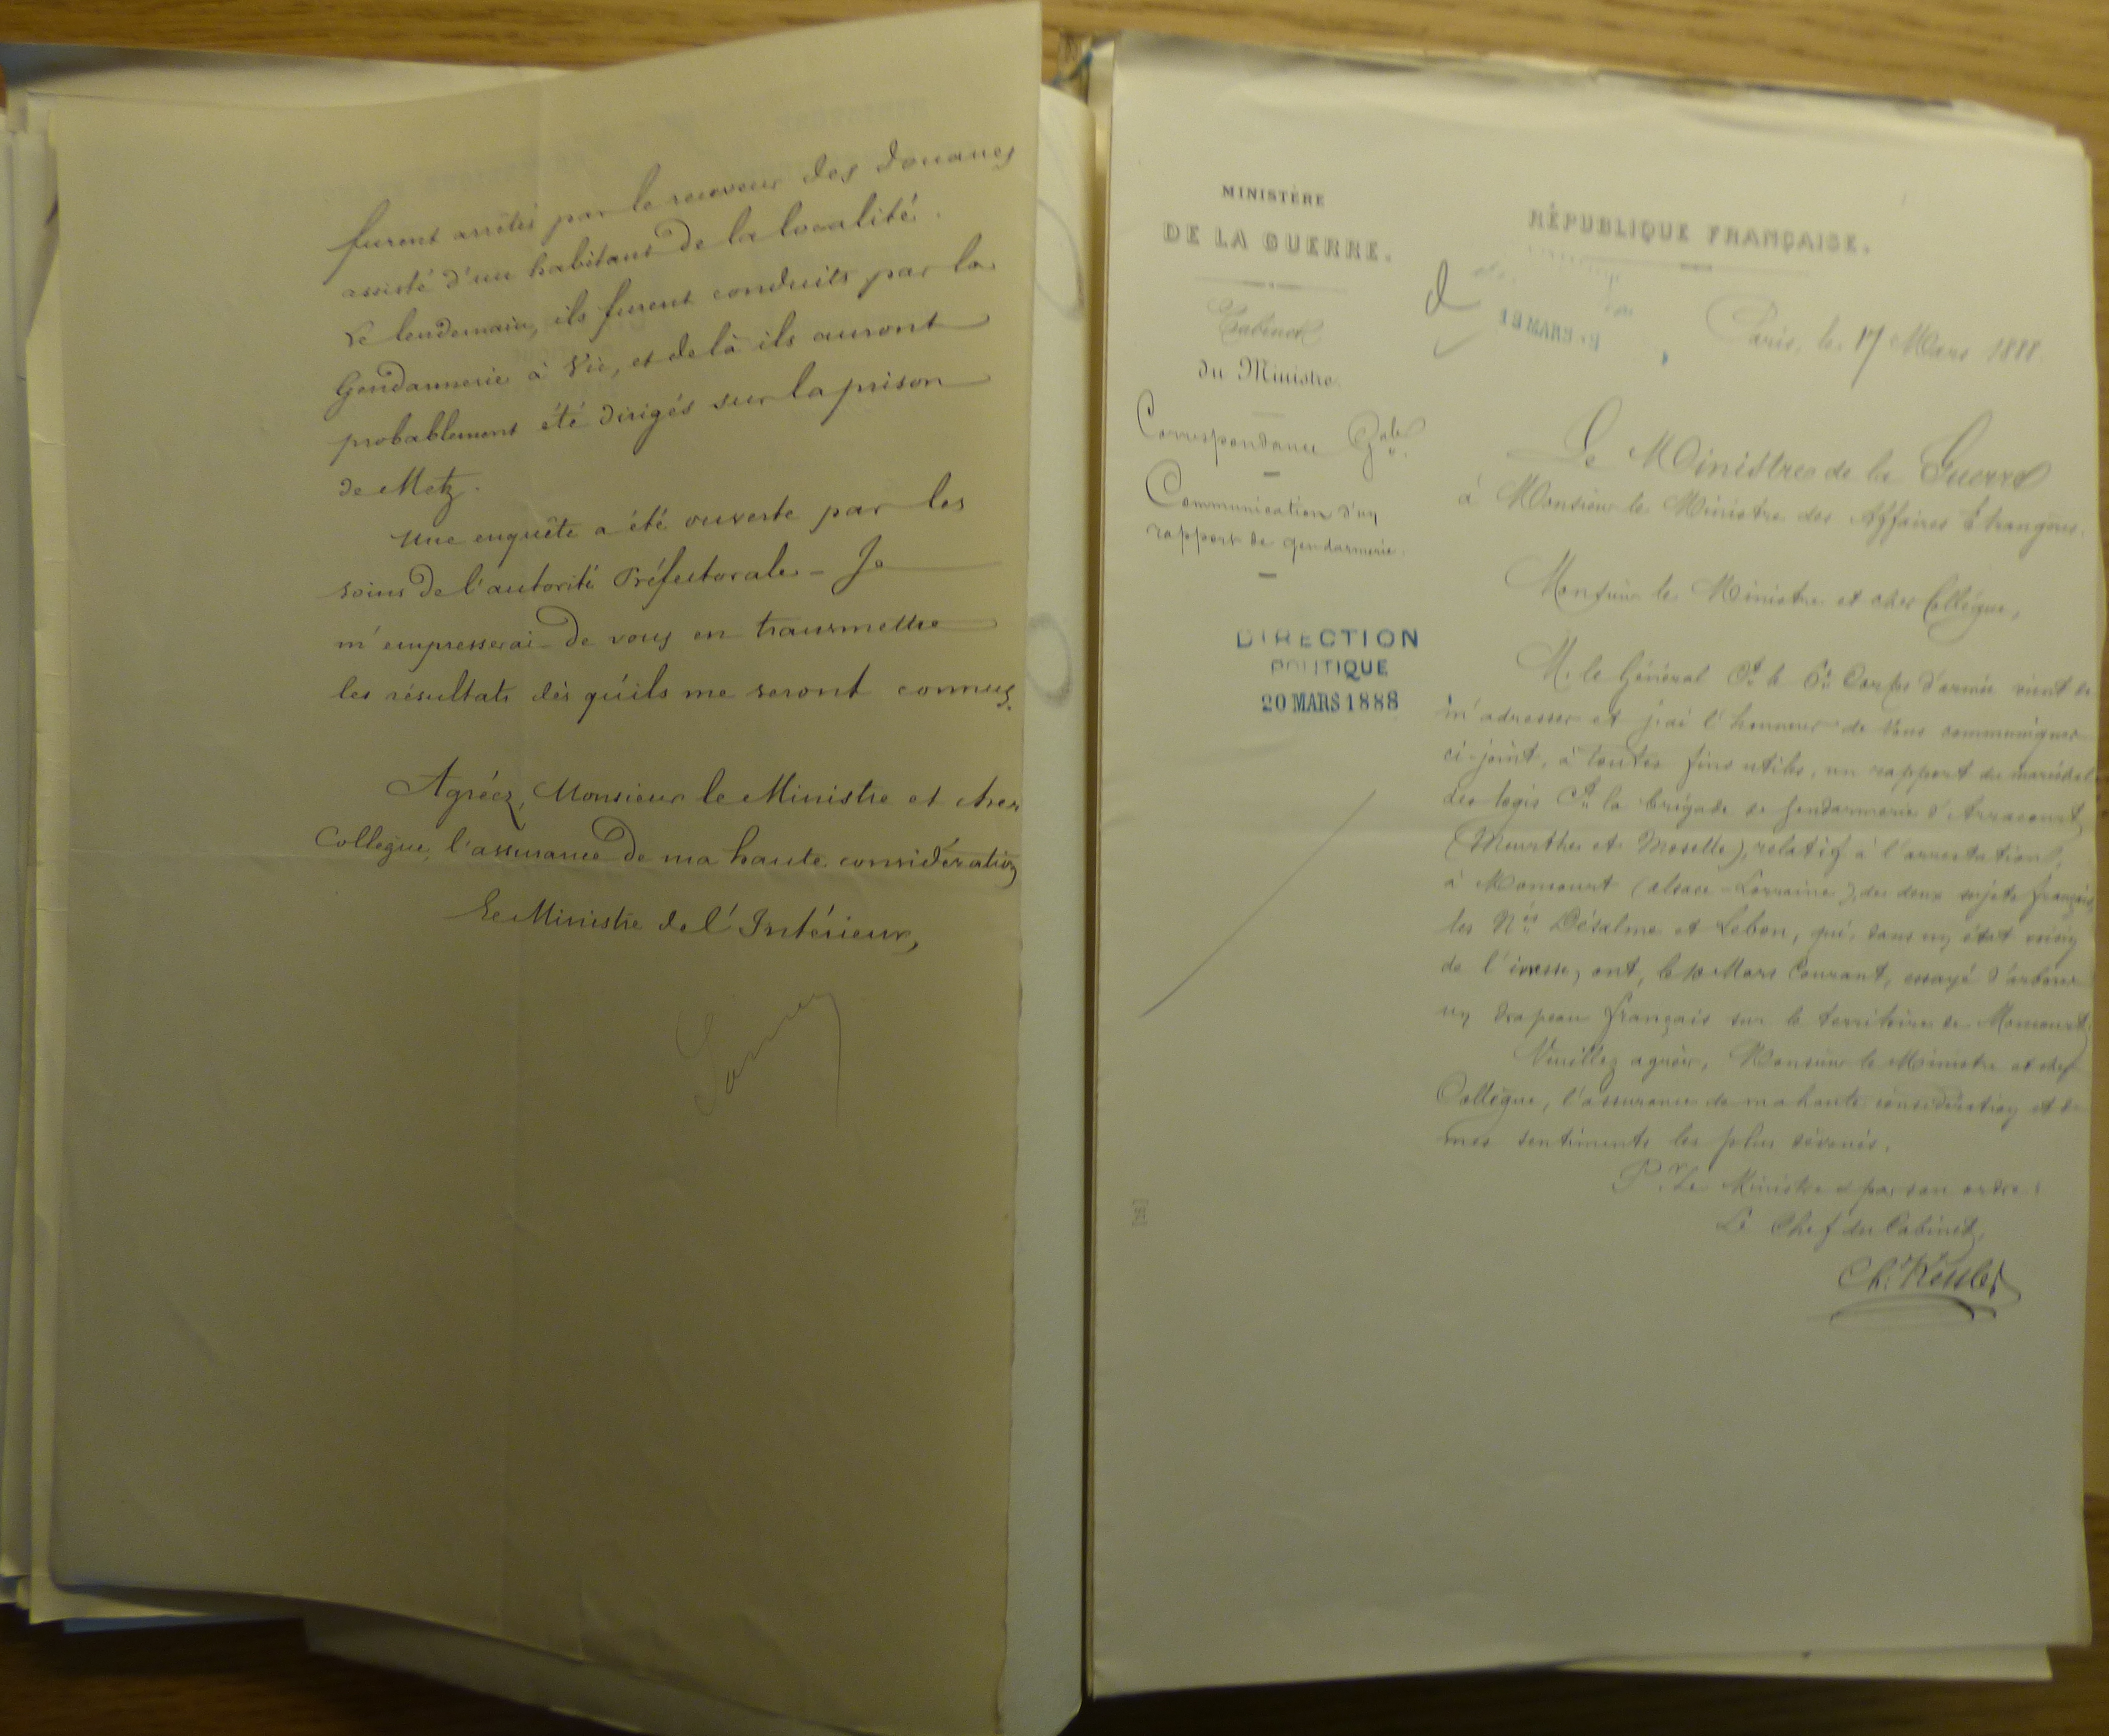 furent arrêtés par le receveur des Douanes
assisté d'un habitant de la localité.
Le lendemain, ils furent conduits par la
Gendarmerie à Vic, et de là ils auront
probablement été dirigés sur la prison
de Metz.
Une enquête a été ouverte par les
soins de l'autorité Préfectorale - Je
m'empresserai de vous en transmettre
les résultats dès qu'ils me seront connus.
Agréez, Monsieur le Ministre et cher
Collègue, l'assurance de ma haute considération
Le Ministre de l'Intérieur,
MINISTÈRE
DE LA GUERRE.
Cabinet
du Ministre.
Correspondance Gale.
Communication d'un
rapport de gendarmerie.
DIRECTION
POLITIQUE
20 MARS 1888
RÉPUBLIQUE FRANÇAISE.
19 MARS
Paris, le 17 Mars 1888.
Le Ministre de la Guerre
à Monsieur le Ministre des Affaires Etrangères.
Monsieur le Ministre et cher Collègue,
M. le Général Ct le 6e Corps d'armée vient de
m'adresser et j'ai l'honneur de vous communiquer
ci-joint, à toutes fins utiles, un rapport du maréchal
des logis Ct la brigade de gendarmerie d'Arracourt
(Meurthe et Moselle), relatif à l'arrestation,
à Moncourt (Alsace-Lorraine), de deux sujets français,
les Nés Désalme et Lebon, qui, dans un état voisin
de l'ivresse, ont, le 10 Mars Courant, essayé d'arborer
un drapeau français sur le territoire de Moncourt.
Veuillez agréer, Monsieur le Ministre et cher
Collègue, l'assurance de ma haute considération et de
mes sentiments les plus dévoués.
Pr. Le Ministre et par son ordre:
Le Chef du Cabinet,
Ch. Kessler